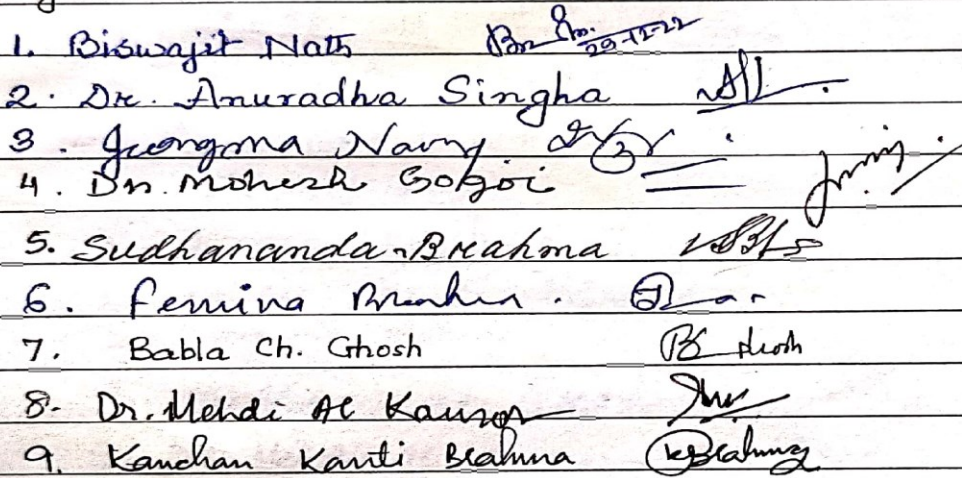 1. Biswajit Nath 29-12-22
2. Dr. Anuradha Singha
3. Jwngma Narzary
4. Dr. Mohesh Gogoi
5. Sudhananda Brahma
6. Femina Brahma.
7. Babla Ch. Ghosh B Ghosh
8. Dr. Mehdi Al Kausor
9. Kanchan Kanti Brahma KBrahma